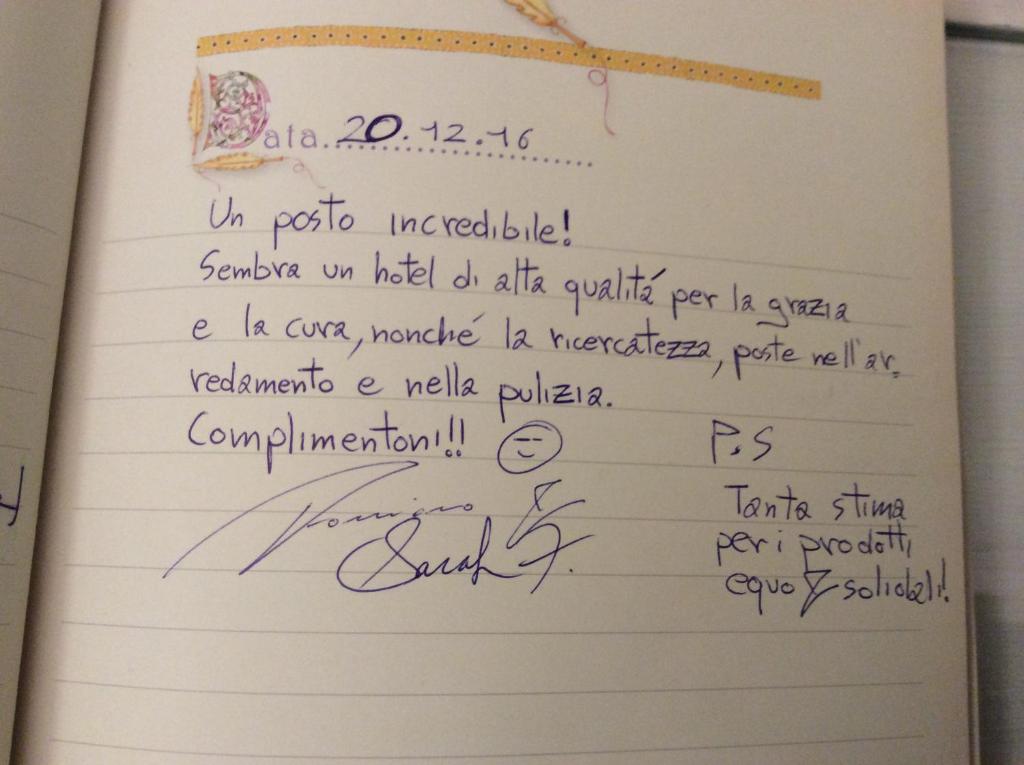 Data 20.12.16
Un posto incredibile!
Sembra un hotel di alta qualitá per la grazia
e la cura, nonché la ricercatezza, poste nell'ar=
redamento e nella pulizia.
Complimentoni!!!
Sarah
P.S
Tanta stima
per i prodotti
equo & solidali!